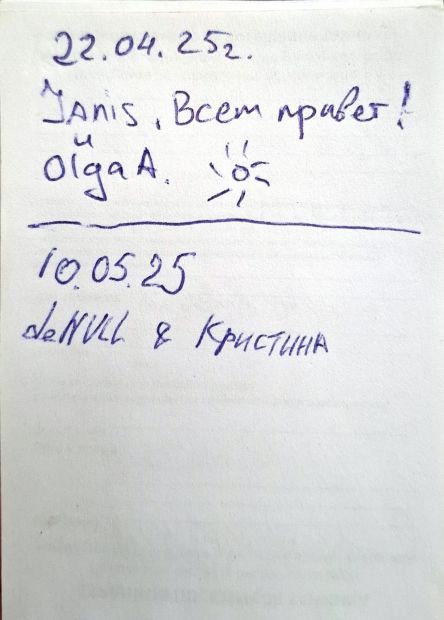 22.04.25г.
Janis, Всем привет!
и
Olga A.
10.05.25
deNULL & Кристина